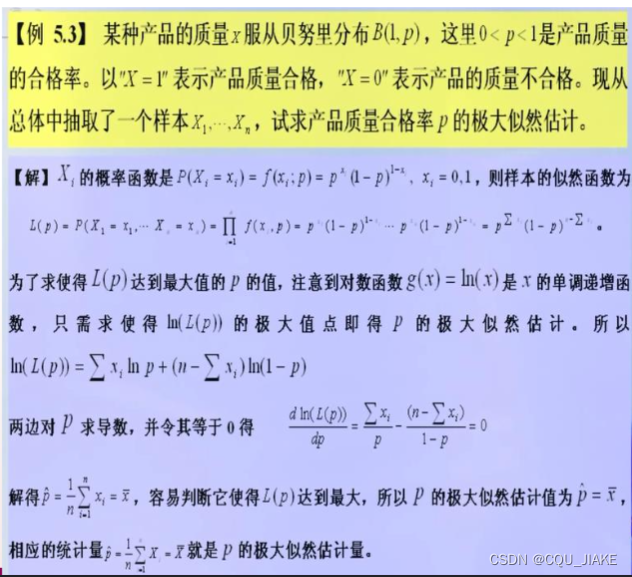 【例 5.3】 某种产品的质量X服从贝努里分布B(1,p),这里0<p<1是产品质量
的合格率。以"X=1"表示产品质量合格,"X=0"表示产品的质量不合格。现从
总体中抽取了一个样本X₁,…,Xₙ,试求产品质量合格率p的极大似然估计。
【解】Xᵢ的概率函数是P(Xᵢ=xᵢ)=f(xᵢ;p)=p^{xᵢ}(1-p)^{1-xᵢ}, xᵢ=0,1,则样本的似然函数为
L(p)=P(X₁=x₁,…Xₙ=xₙ)=∏f(xᵢ,p)=p(1-p)^{1-}…p(1-p)^{1-}=p^{∑}(1-p)^{n-∑}。
为了求使得L(p)达到最大值的p的值,注意到对数函数g(x)=ln(x)是x的单调递增函
数,只需求使得ln(L(p))的极大值点即得p的极大似然估计。所以
ln(L(p))=∑xᵢ ln p+(n-∑xᵢ)ln(1-p)
两边对P求导数,并令其等于0得 d ln(L(p))/dp=∑xᵢ/p-(n-∑xᵢ)/(1-p)=0
解得p̂=1/n ∑_{i=1}^{n} xᵢ=x̄,容易判断它使得L(p)达到最大,所以P的极大似然估计值为p̂=x̄,
相应的统计量p̂=1/n ∑_{i=1} Xᵢ=X̄就是p的极大似然估计量。
CSDN @CQU_JIAKE